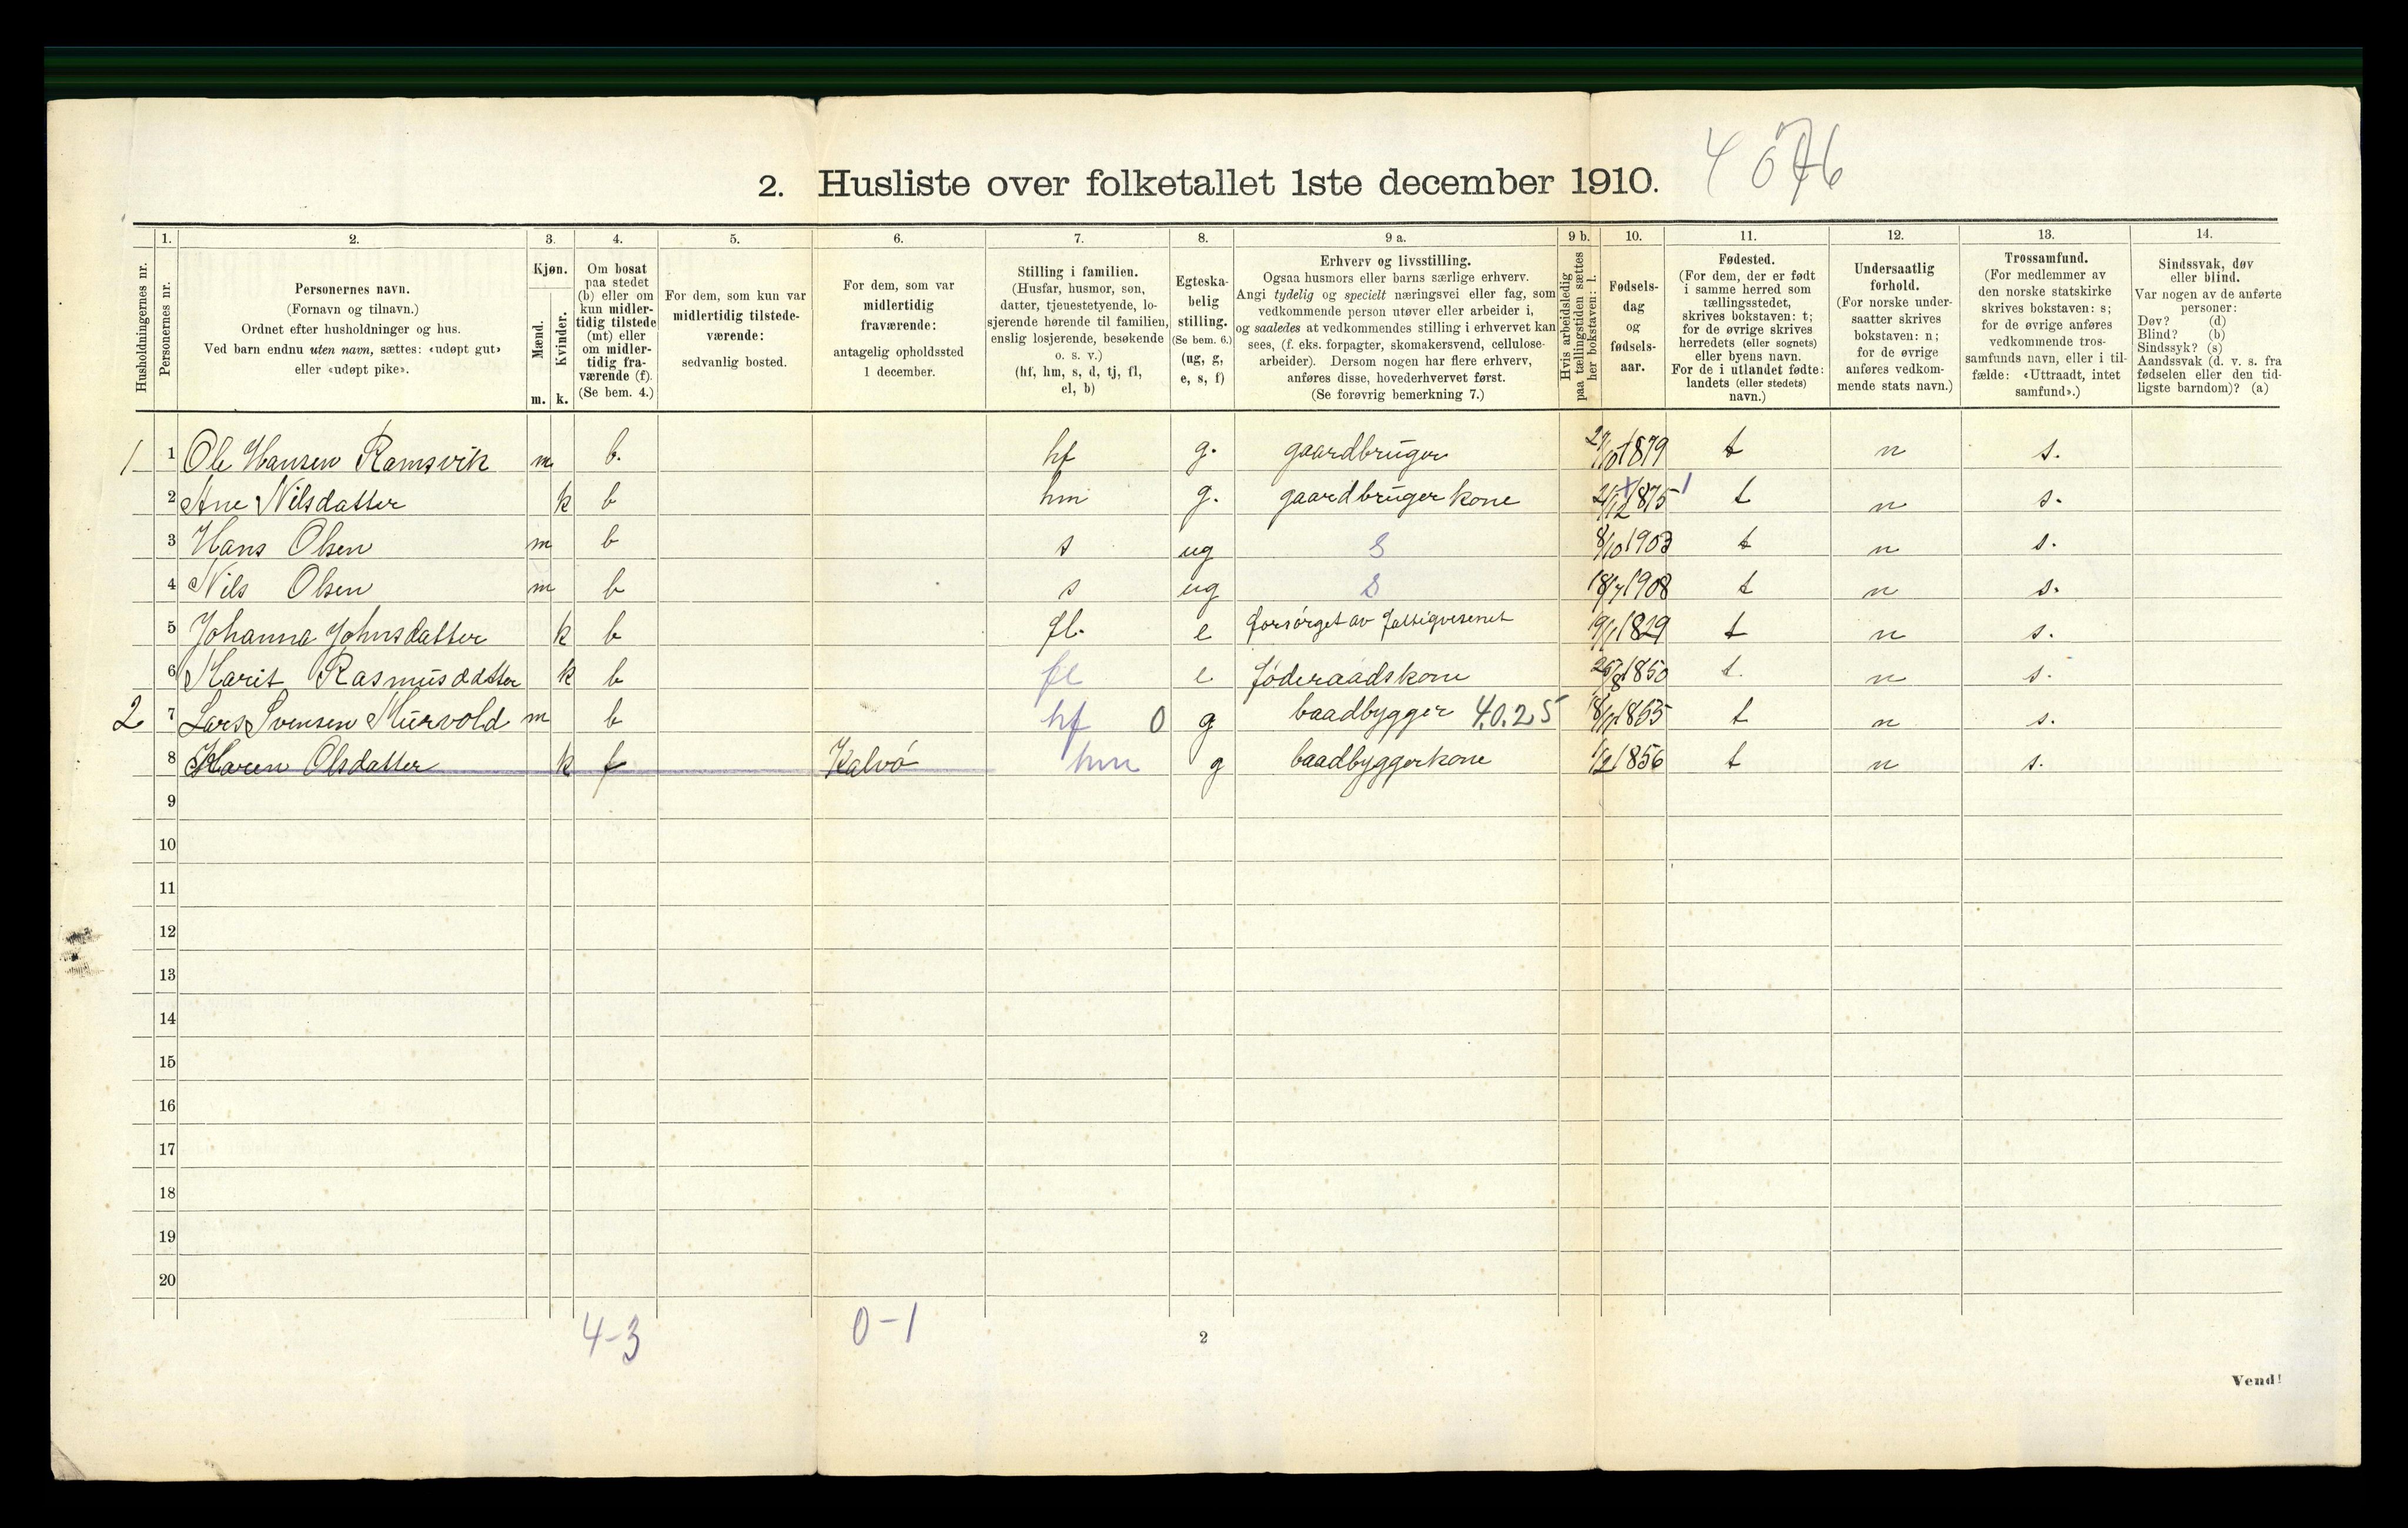 2. Husliste over folketallet 1ste december 1910.
1. 2. 3. 4. 5. 6. 7. 8. 9 a. 9 b. 10. 11. 12. 13. 14.
Husholdningernes nr.
Personernes nr.
Personernes navn.
(Fornavn og tilnavn.)
Ordnet efter husholdninger og hus.
Ved barn endnu uten navn, sættes: «udøpt gut»
eller «udøpt pike».
Kjøn.
Mænd.
Kvinder.
m. k.
Om bosat
paa stedet
(b) eller om
kun midler-
tidig tilstede
(mt) eller
om midler-
tidig fra-
værende (f).
(Se bem. 4.)
For dem, som kun var
midlertidig tilstede-
værende:
sedvanlig bosted.
For dem, som var
midlertidig
fraværende:
antagelig opholdssted
1 december.
Stilling i familien.
(Husfar, husmor, søn,
datter, tjenestetyende, lo-
sjerende hørende til familien,
enslig losjerende, besøkende
o. s. v.)
(hf, hm, s, d, tj, fl,
el, b)
Egteska-
belig
stilling.
(Se bem. 6.)
(ug, g,
e, s, f)
Erhverv og livsstilling.
Ogsaa husmors eller barns særlige erhverv.
Angi tydelig og specielt næringsvei eller fag, som
vedkommende person utøver eller arbeider i,
og saaledes at vedkommendes stilling i erhvervet kan
sees, (f. eks. forpagter, skomakersvend, cellulose-
arbeider). Dersom nogen har flere erhverv,
anføres disse, hovederhvervet først.
(Se forøvrig bemerkning 7.)
Hvis arbeidsledig
paa tællingstiden sættes
her bokstaven: l.
Fødsels-
dag
og
fødsels-
aar.
Fødested.
(For dem, der er født
i samme herred som
tællingsstedet,
skrives bokstaven: t;
for de øvrige skrives
herredets (eller sognets)
eller byens navn.
For de i utlandet fødte:
landets (eller stedets)
navn.)
Undersaatlig
forhold.
(For norske under-
saatter skrives
bokstaven: n;
for de øvrige
anføres vedkom-
mende stats navn.)
Trossamfund.
(For medlemmer av
den norske statskirke
skrives bokstaven: s;
for de øvrige anføres
vedkommende tros-
samfunds navn, eller i til-
fælde: «Uttraadt, intet
samfund».)
Sindssvak, døv
eller blind.
Var nogen av de anførte
personer:
Døv? (d)
Blind? (b)
Sindssyk? (s)
Aandssvak (d. v. s. fra
fødselen eller den tid-
ligste barndom)? (a)
1 1 Ole Hansen Ramsvik m b. hf g. gaardbruger 1879 t n s.
2 Ane Nilsdatter k b hm g. gaardbruger kone 21/12 1875 t n s.
3 Hans Olsen m b s ug S 8/10 1903 t n s.
4 Nils Olsen m b s ug S 18/7 1908 t n s.
5 Johanna Johnsdatter k b fl. e forsørget av fattigvesenet 19/1 1829 t n s.
6 Marit Rasmusdatter k b fl e føderaadskone 1850 t. n s.
2 7 Lars Svensen Murvold m b hf 0 g baadbygger 4.0.25 t n s.
8 Karen Olsdatter k f Kalvö hm g baadbyggerkone 1/2 1856 t n s.
9
10
11
12
13
14
15
16
17
18
19
20
4-3 0-1
2
Vend!